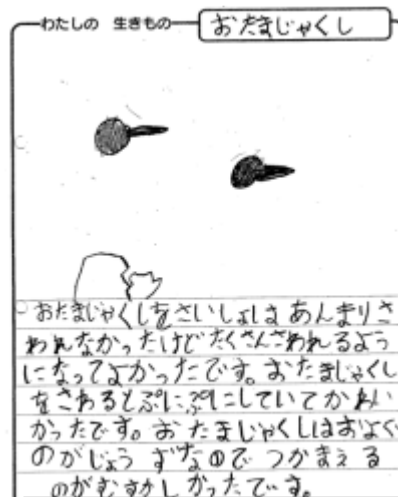 わたしの 生きもの
おたまじゃくし
おたまじゃくしをさいしょは あんまりさ
われなかったけど たくさんさわれるよう
になってよかったです。おたまじゃくし
をさわるとぷにぷにしていてかわい
かったです。おたまじゃくしはおよぐ
のがじょうずなので つかまえる
のがむずかしかったです。